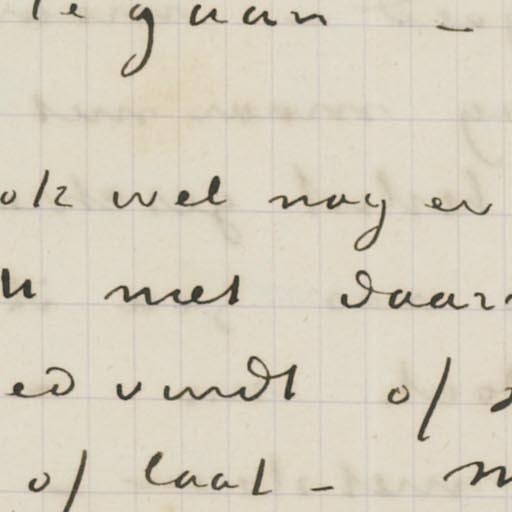 te gaan -
ok wel nog er
u met daar
ed vindt of
of laat -